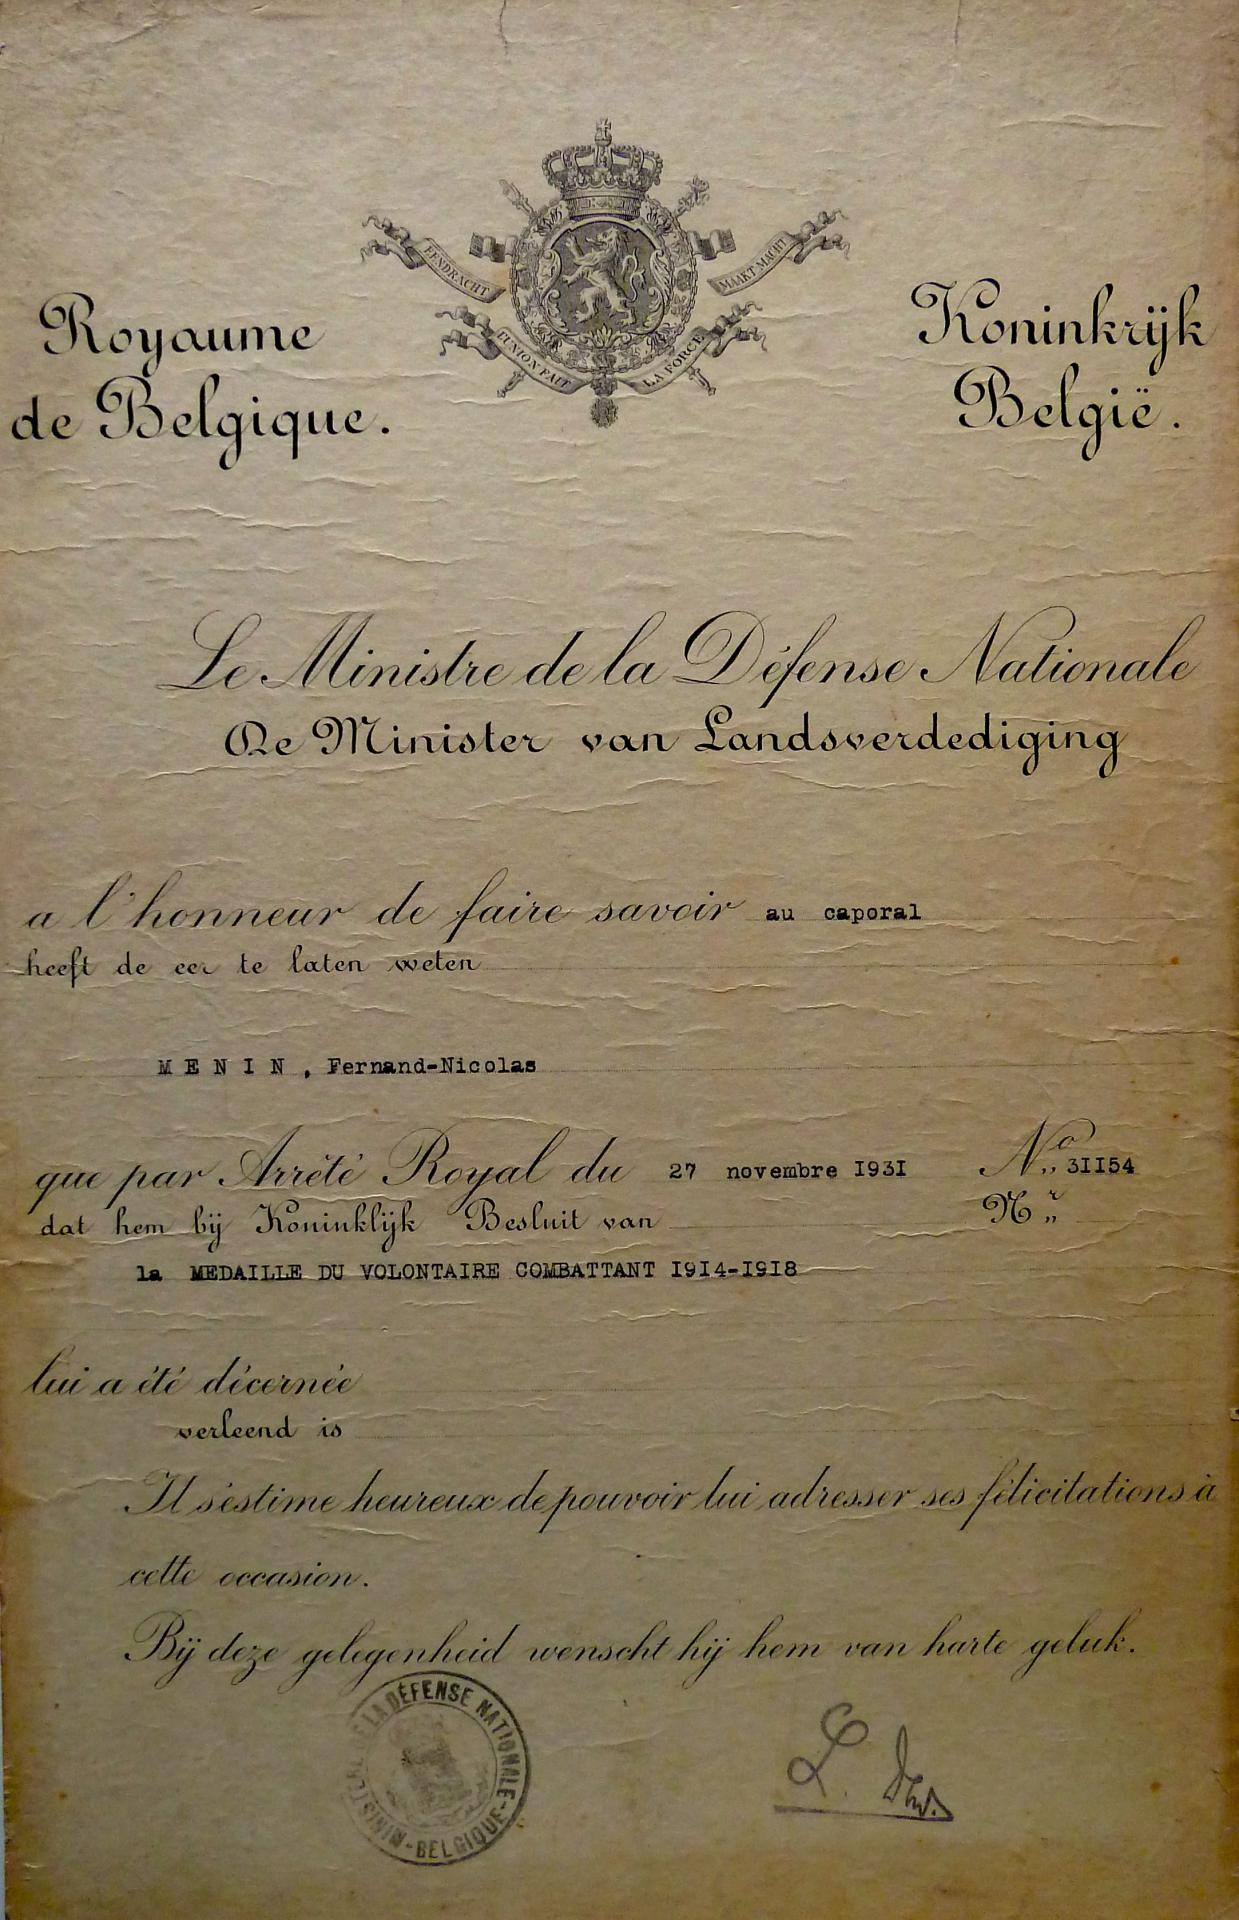 EENDRACHT MAAKT MACHT
L'UNION FAIT LA FORCE
Royaume
de Belgique.
Koninkrijk
België.
Le Ministre de la Défense Nationale
De Minister van Landsverdediging
a l'honneur de faire savoir au caporal
heeft de eer te laten weten
M E N I N , Fernand-Nicolas
que par Arrêté Royal du 27 novembre I93I No „ 3II54
dat hem bij Koninklijk Besluit van Nr „
la MEDAILLE DU VOLONTAIRE COMBATTANT I9I4-I9I8
lui a été décernée
verleend is
Il s'estime heureux de pouvoir lui adresser ses félicitations à
cette occasion.
Bij deze gelegenheid wenscht hij hem van harte geluk.
LA DÉFENSE NATIONALE - BELGIQUE - MINISTÈRE